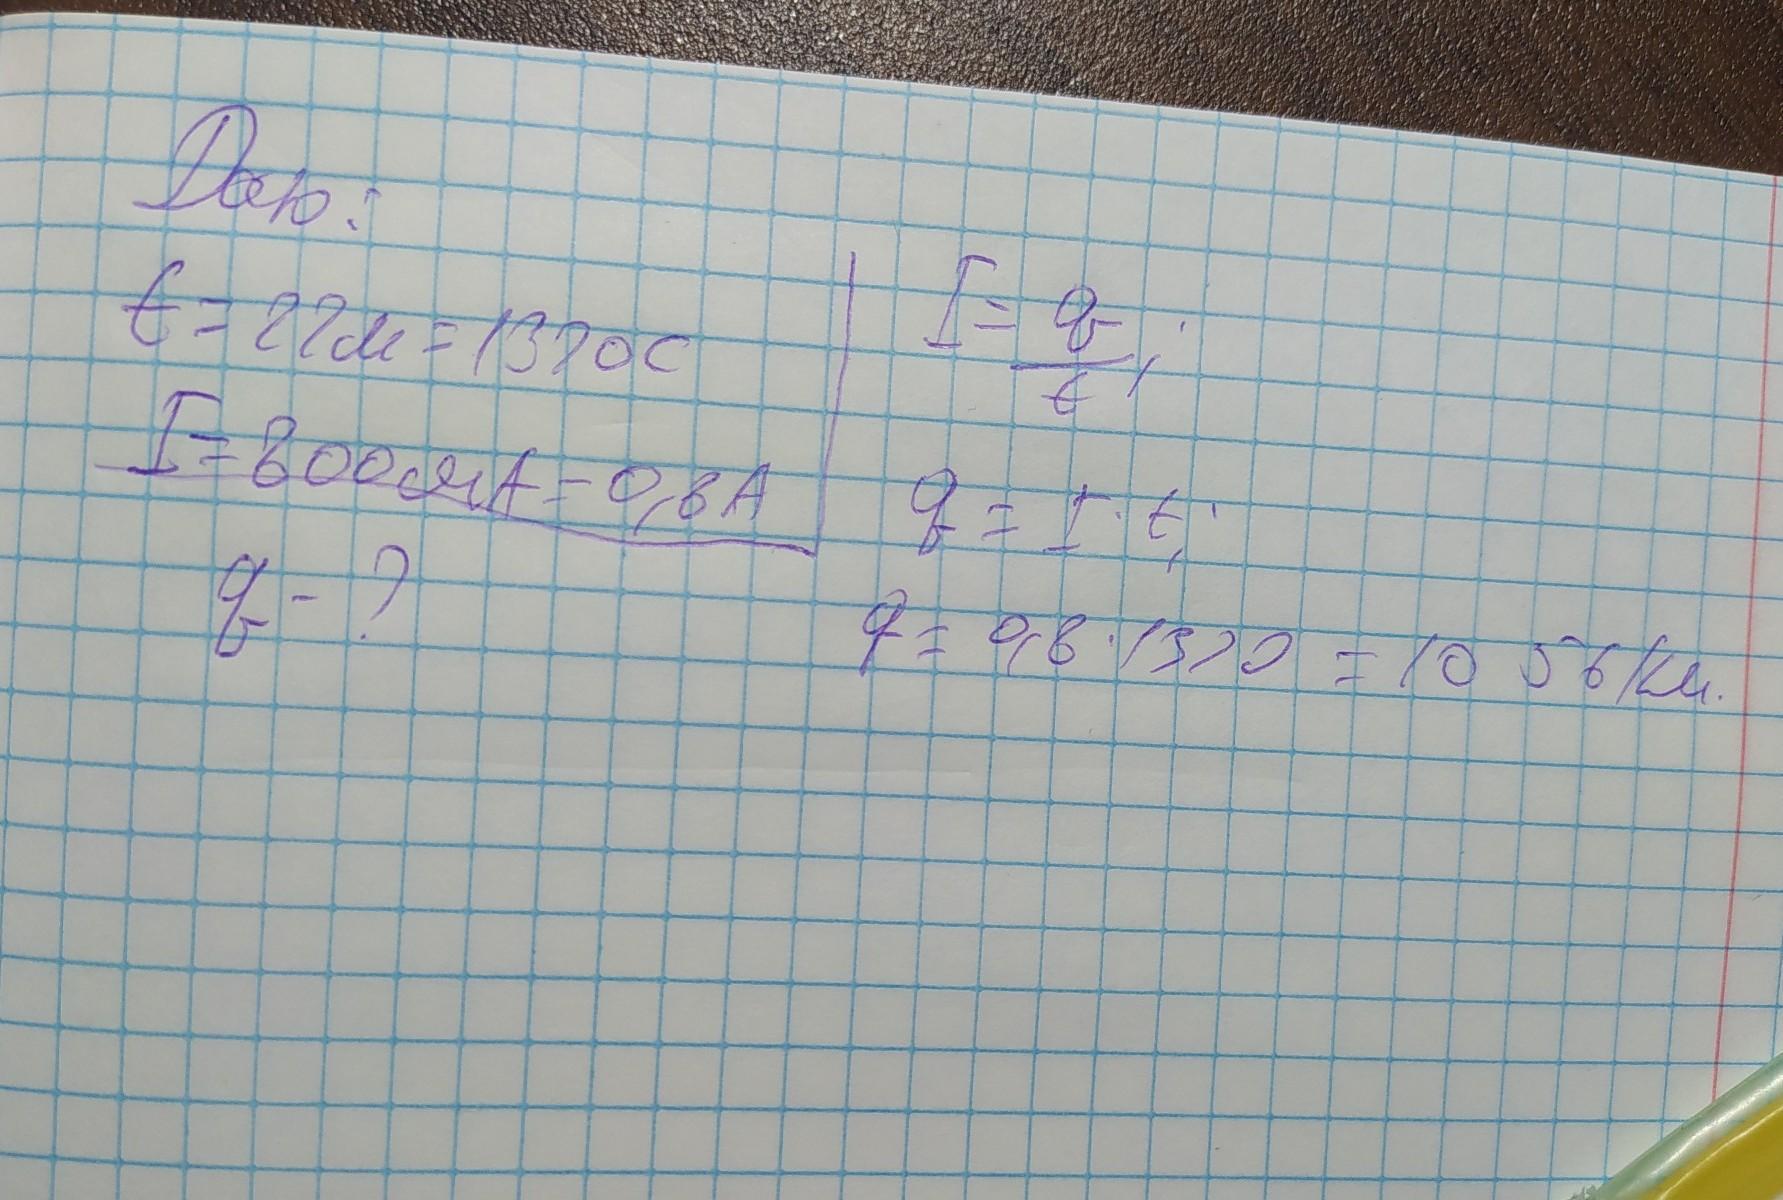 Дано:
t = 22м = 1320с
I = 800мА = 0,8А
q - ?
I = q/t;
q = I · t;
q = 0,8 · 1320 = 1056 Кл.